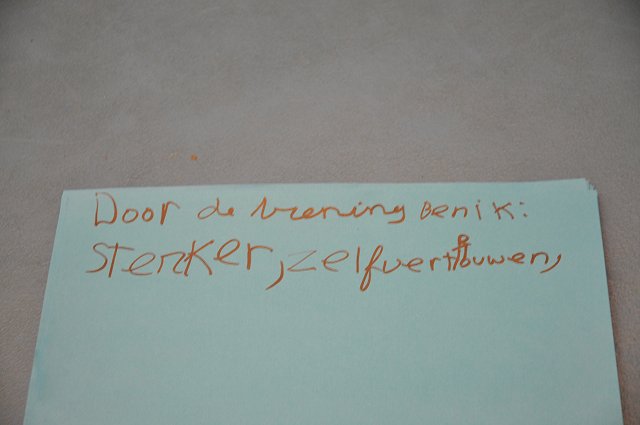 Door de trening Ben ik:
Sterker, zelfvertrouwen,